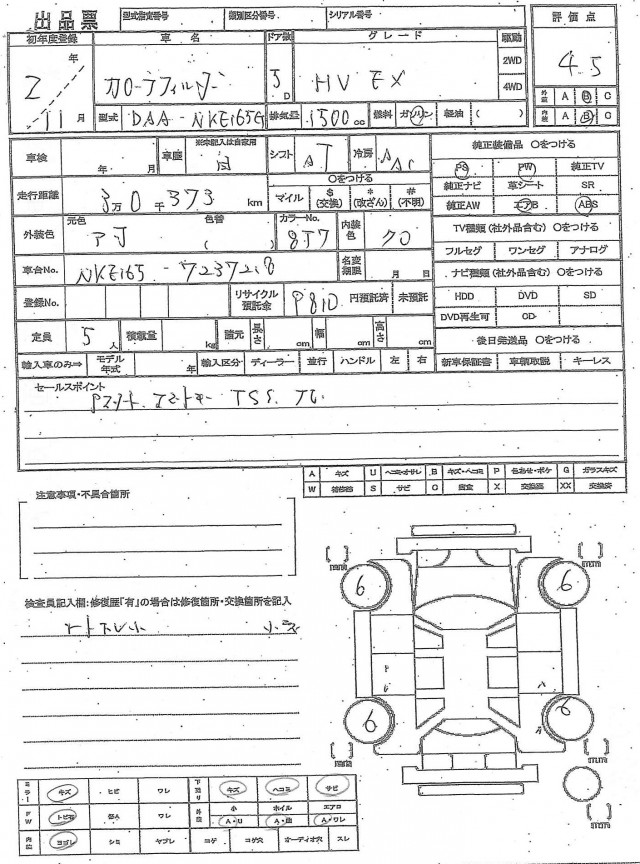 出品票 型式指定番号 類別区分番号 シリアル番号
評価点
初年度登録 車名 ドア数 グレード 駆動
2年 11月 カローラフィルダー 5D HV EX 2WD 4WD
4.5
型式 DAA-NKE165G 排気量 1500cc 燃料 ガソリン 軽油 ( )
外装 A B C
内装 A B C
車検 年 月 車歴 ※未記入は自家用 シフト AT 冷房 AAC
純正装備品 〇をつける
PS PW 純正TV
走行距離 3万0千373km マイル 〇をつける $(交換) *(改ざん) #(不明)
純正ナビ 革シート SR
純正AW エアB ABS
外装色 元色 色替 ( ) カラーNo. 8P7 内装色 クロ
TV種類(社外品含む) 〇をつける
フルセグ ワンセグ アナログ
車台No. NKE165-7237218 名変期限 月 日
ナビ種類(社外品含む) 〇をつける
登録No. リサイクル預託金 9810円預託済 未預託
HDD DVD SD
DVD再生可 CD
定員 5人 積載量 kg 諸元 長さ cm 幅 cm 高さ cm
後日発送品 〇をつける
輸入車のみ⇒ モデル年式 年 輸入区分 ディーラー 並行 ハンドル 左 右
新車保証書 車輌取説 キーレス
セールスポイント
Pスタート TSS
A キズ U ヘコミ・オサレ B キズ・ヘコミ P 色あせ・ボケ G ガラスキズ
W 補修跡 S サビ C 腐食 X 交換要 XX 交換済
注意事項・不具合箇所
検査員記入欄:修復歴「有」の場合は修復箇所・交換箇所を記入
mm mm
6 6
6 6
mm mm
mm
ミラー キズ ヒビ ワレ 下廻り キズ ヘコミ サビ
FW トビ石 ワレ 外装 小A・U ホイルA・曲 エアロA・ワレ
内装 ヨゴレ シミ ヤブレ コゲ コゲ穴 オーディオ穴 スレ